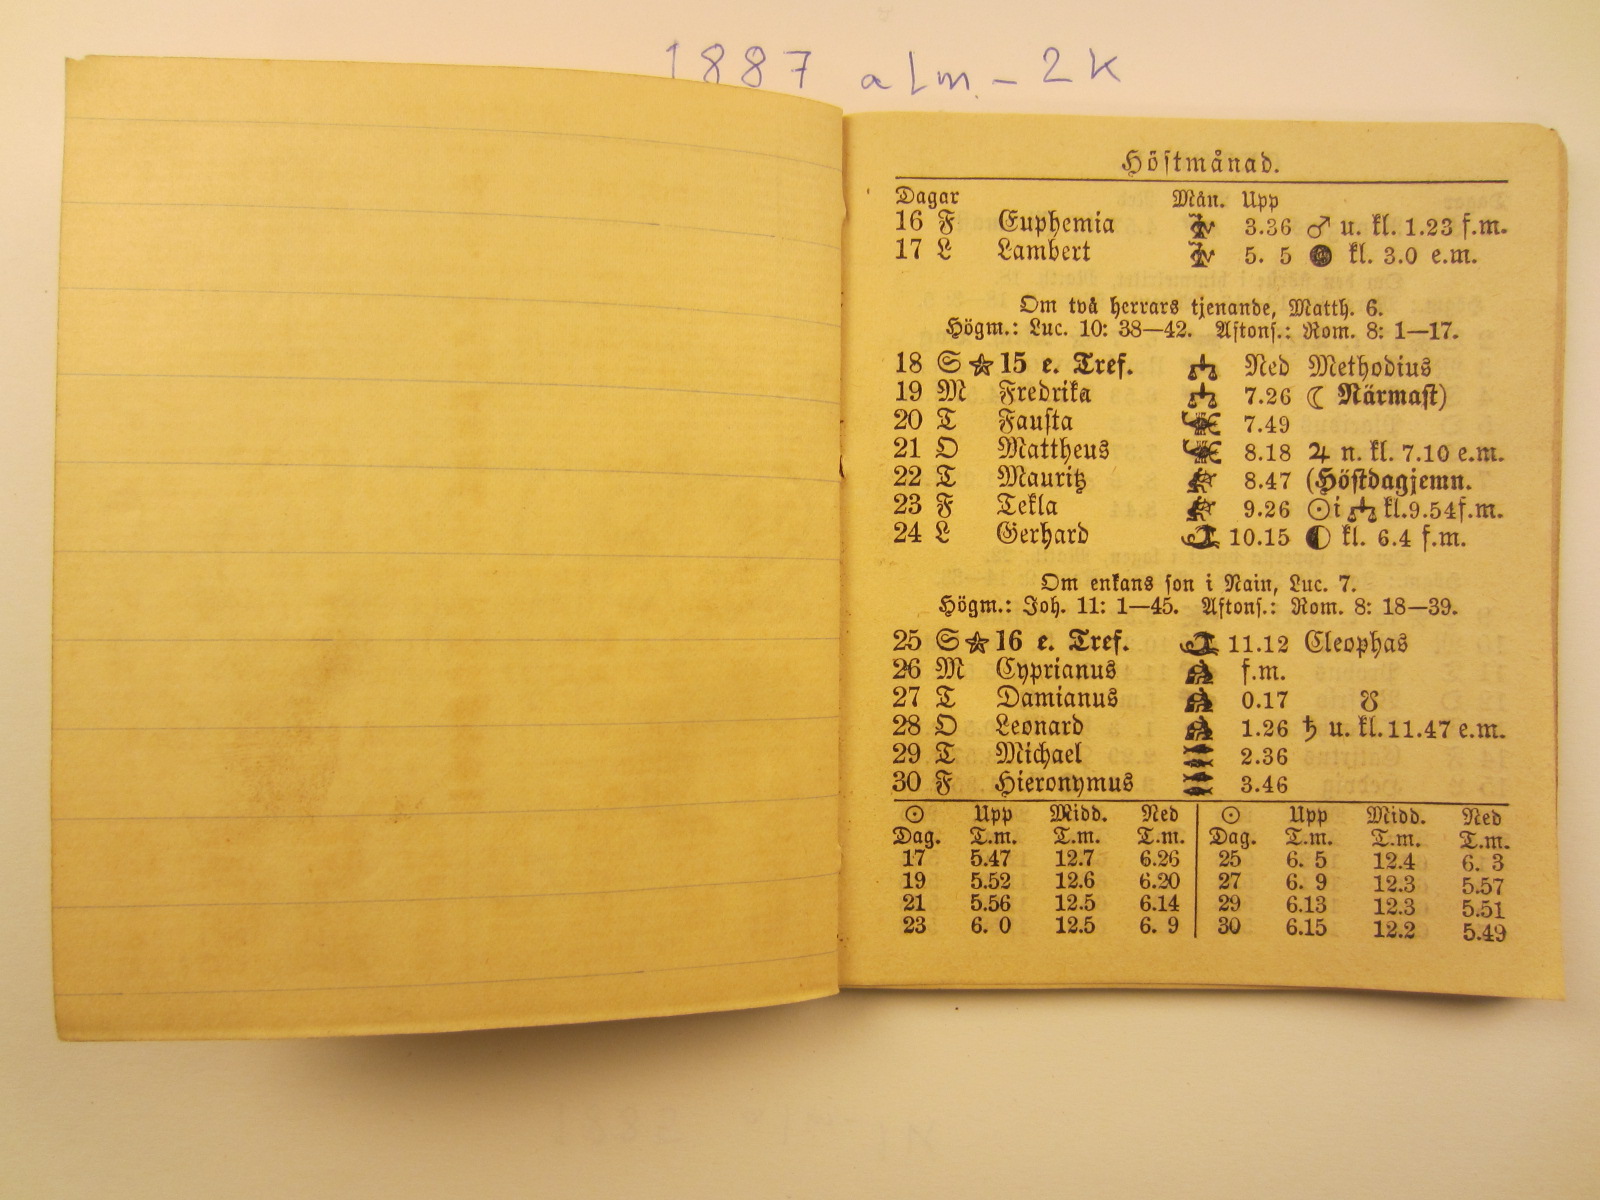 1887 alm - 2K
Höstmånad.
Dagar Mån. Upp
16 F Euphemia 3.36 ♂ u. kl. 1.23 f.m.
17 L Lambert 5. 5 kl. 3.0 e.m.
Om två herrars tjenande, Matth. 6.
Högm.: Luc. 10: 38—42. Aftons.: Rom. 8: 1—17.
18 S ☆ 15 e. Tref. Ned Methodius
19 M Fredrika 7.26 ☾ Närmast)
20 T Fausta 7.49
21 O Mattheus 8.18 ♃ n. kl. 7.10 e.m.
22 T Mauritz 8.47 (Höstdagjemn.
23 F Tekla 9.26 ☉ i ♎ kl. 9.54 f.m.
24 L Gerhard 10.15 ◐ kl. 6.4 f.m.
Om enkans son i Nain, Luc. 7.
Högm.: Joh. 11: 1—45. Aftons.: Rom. 8: 18—39.
25 S ☆ 16 e. Tref. 11.12 Cleophas
26 M Cyprianus f.m.
27 T Damianus 0.17 ☋
28 O Leonard 1.26 ♄ u. kl. 11.47 e.m.
29 T Michael 2.36
30 F Hieronymus 3.46
☉ Upp Midd. Ned ☉ Upp Midd. Ned
Dag. T.m. T.m. T.m. Dag. T.m. T.m. T.m.
17 5.47 12.7 6.26 25 6. 5 12.4 6. 3
19 5.52 12.6 6.20 27 6. 9 12.3 5.57
21 5.56 12.5 6.14 29 6.13 12.3 5.51
23 6. 0 12.5 6. 9 30 6.15 12.2 5.49